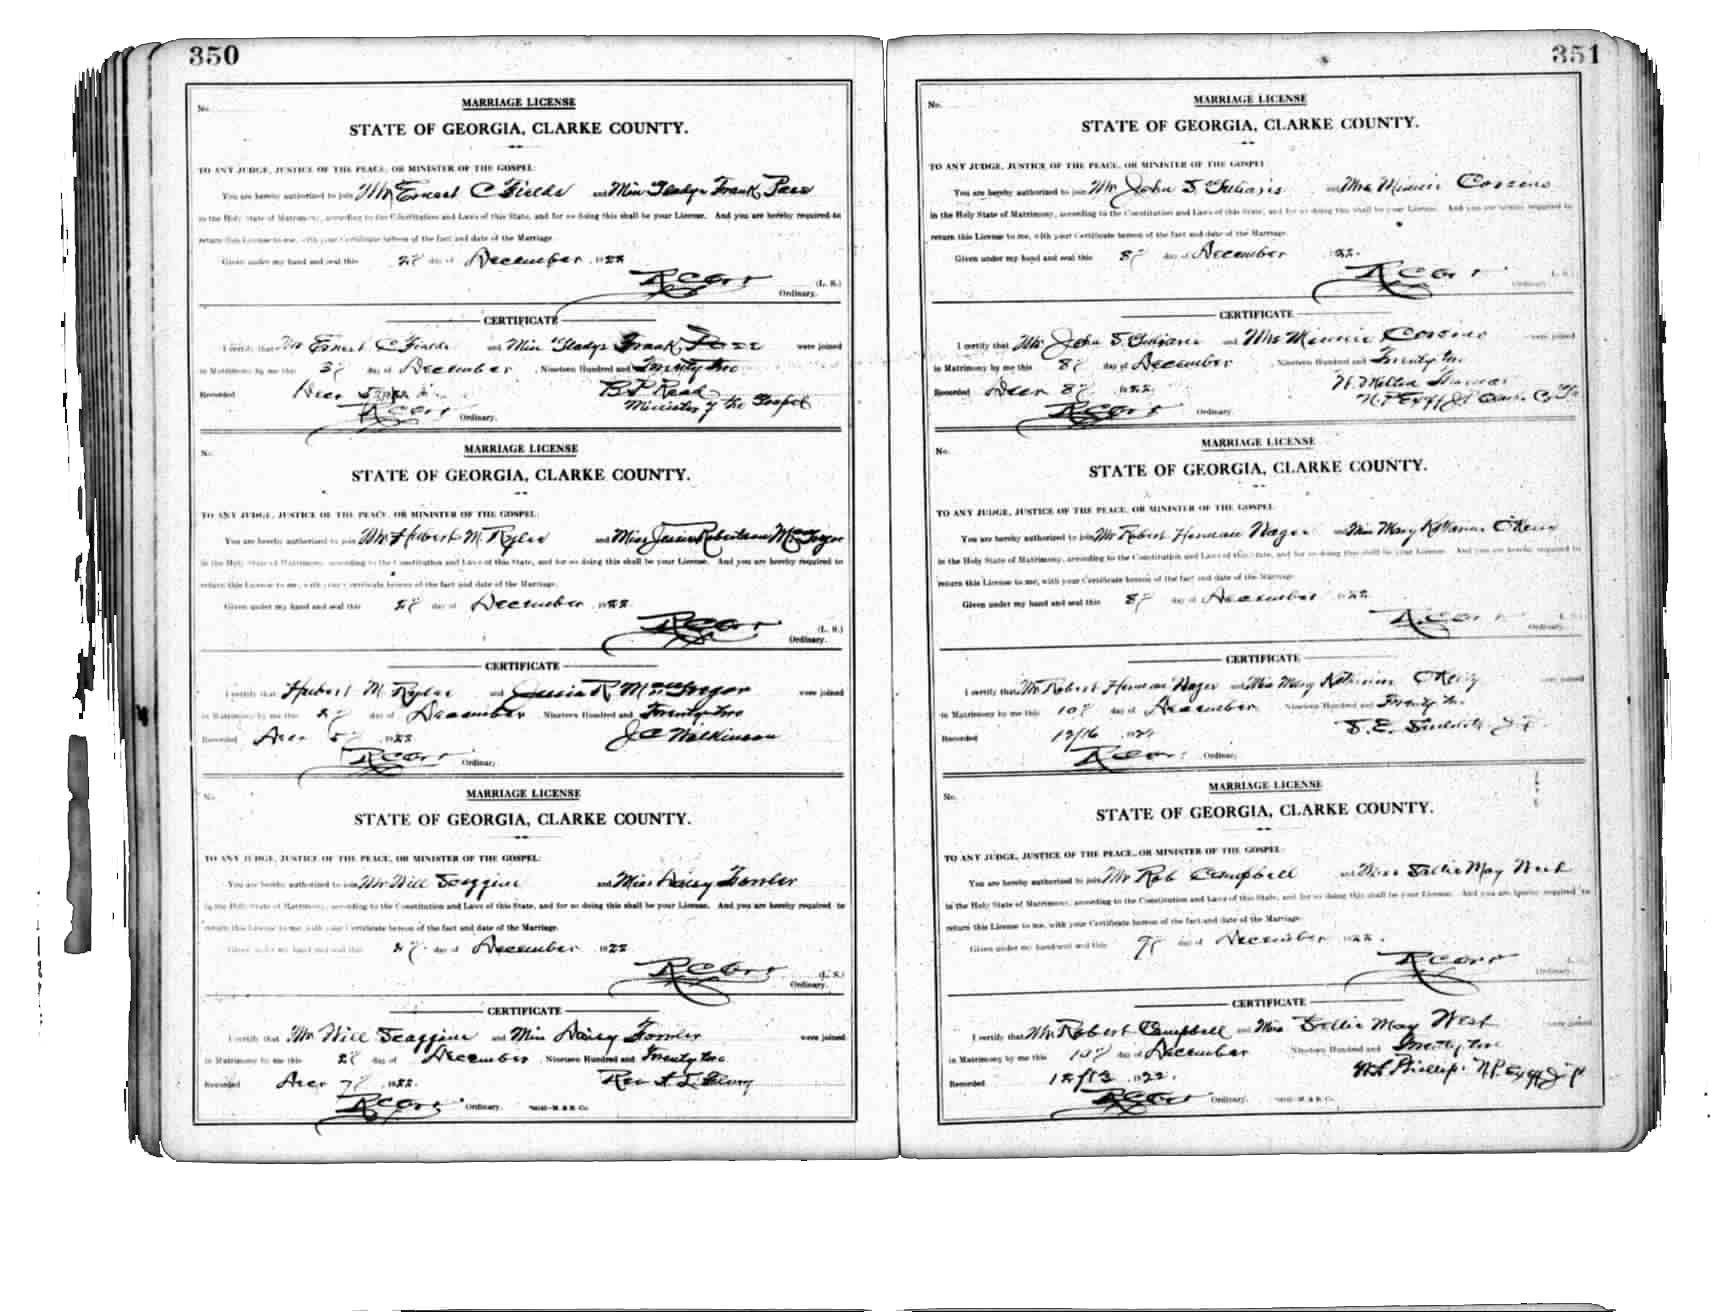 350
No.
MARRIAGE LICENSE
STATE OF GEORGIA, CLARKE COUNTY.
TO ANY JUDGE, JUSTICE OF THE PEACE, OR MINISTER OF THE GOSPEL:
You are hereby authorized to join Mr Ernest C Fields and Miss Gladys Frank Pass
in the Holy State of Matrimony, according to the Constitution and Laws of this State, and for so doing this shall be your License. And you are hereby required to
return this License to me, with your Certificate hereon of the fact and date of the Marriage.
Given under my hand and seal this 2" day of December 1922
(L. S.)
Ordinary.
CERTIFICATE
I certify that Mr Ernest C Fields and Miss Gladys Frank Pass were joined
in Matrimony by me this 3" day of December, Nineteen Hundred and Twenty two
Recorded Decr B P Read
Ordinary. Minister of the Gospel
No.
MARRIAGE LICENSE
STATE OF GEORGIA, CLARKE COUNTY.
TO ANY JUDGE, JUSTICE OF THE PEACE, OR MINISTER OF THE GOSPEL:
You are hereby authorized to join Mr Hubert M. Rylee and Miss Jessie Robertson McGregor
in the Holy State of Matrimony, according to the Constitution and Laws of this State, and for so doing this shall be your License. And you are hereby required to
return this License to me, with your Certificate hereon of the fact and date of the Marriage.
Given under my hand and seal this 2" day of December 1922
(L. S.)
Ordinary.
CERTIFICATE
I certify that Hubert M. Rylee and Jessie R. McGregor were joined
in Matrimony by me this 2" day of December Nineteen Hundred and Twenty two
Recorded Decr 5" 1922 J C Wilkinson
Ordinary.
No.
MARRIAGE LICENSE
STATE OF GEORGIA, CLARKE COUNTY.
TO ANY JUDGE, JUSTICE OF THE PEACE, OR MINISTER OF THE GOSPEL:
You are hereby authorized to join Mr Will Scaggins and Miss Daisy Fowler
in the Holy State of Matrimony, according to the Constitution and Laws of this State, and for so doing this shall be your License. And you are hereby required to
return this License to me, with your Certificate hereon of the fact and date of the Marriage.
Given under my hand and seal this 2" day of December 1922
(L. S.)
Ordinary.
CERTIFICATE
I certify that Mr Will Scaggins and Miss Daisy Fowler were joined
in Matrimony by me this 2" day of December, Nineteen Hundred and Twenty two
Recorded Decr 7" 1922 Rev
Ordinary.
351
No.
MARRIAGE LICENSE
STATE OF GEORGIA, CLARKE COUNTY.
TO ANY JUDGE, JUSTICE OF THE PEACE, OR MINISTER OF THE GOSPEL:
You are hereby authorized to join Mr John and Mrs Minnie Cossens
in the Holy State of Matrimony, according to the Constitution and Laws of this State, and for so doing this shall be your License. And you are hereby required to
return this License to me, with your Certificate hereon of the fact and date of the Marriage.
Given under my hand and seal this 8" day of December 1922.
Ordinary.
CERTIFICATE
I certify that Mr John and Mrs Minnie Cossens were joined
in Matrimony by me this 8" day of December, Nineteen Hundred and Twenty two
Recorded Decr 8" 1922.
Ordinary.
No.
MARRIAGE LICENSE
STATE OF GEORGIA, CLARKE COUNTY.
TO ANY JUDGE, JUSTICE OF THE PEACE, OR MINISTER OF THE GOSPEL:
You are hereby authorized to join Mr Robert Herman Nager and Miss Mary
in the Holy State of Matrimony, according to the Constitution and Laws of this State, and for so doing this shall be your License. And you are hereby required to
return this License to me, with your Certificate hereon of the fact and date of the Marriage.
Given under my hand and seal this 8" day of December 1922.
Ordinary.
CERTIFICATE
I certify that Mr Robert Herman Nager and Miss Mary were joined
in Matrimony by me this 10" day of December Nineteen Hundred and Twenty two
Recorded 12/16 1922 S. E.
Ordinary.
No.
MARRIAGE LICENSE
STATE OF GEORGIA, CLARKE COUNTY.
TO ANY JUDGE, JUSTICE OF THE PEACE, OR MINISTER OF THE GOSPEL:
You are hereby authorized to join Mr Rob Campbell and Miss Sallie May West
in the Holy State of Matrimony, according to the Constitution and Laws of this State, and for so doing this shall be your License. And you are hereby required to
return this License to me, with your Certificate hereon of the fact and date of the Marriage.
Given under my hand and seal this 9" day of December 1922.
Ordinary.
CERTIFICATE
I certify that Mr Robert Campbell and Miss Sallie May West were joined
in Matrimony by me this 10" day of December Nineteen Hundred and Twenty two
Recorded 12/13 1922. Phillips N.P. Ex off J P
Ordinary.